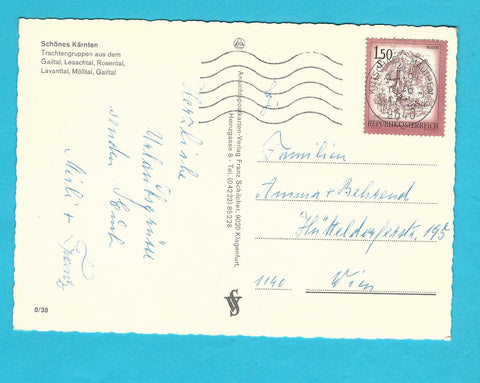 Schönes Kärnten
Trachtengruppen aus dem
Gailtal, Lesachtal, Rosental,
Lavanttal, Mölltal, Gailtal
Herzliche
Urlaubsgrüße
senden Euch
+
Franz
Ansichtspostkarten-Verlag Franz Schilcher, 9020 Klagenfurt,
Heinzgasse 8 - Tel. (04222) 85228
1.50
REPUBLIK ÖSTERREICH
9640
Familien
+ Behrend
Hütteldorferstr. 195
1140 Wien
0/38